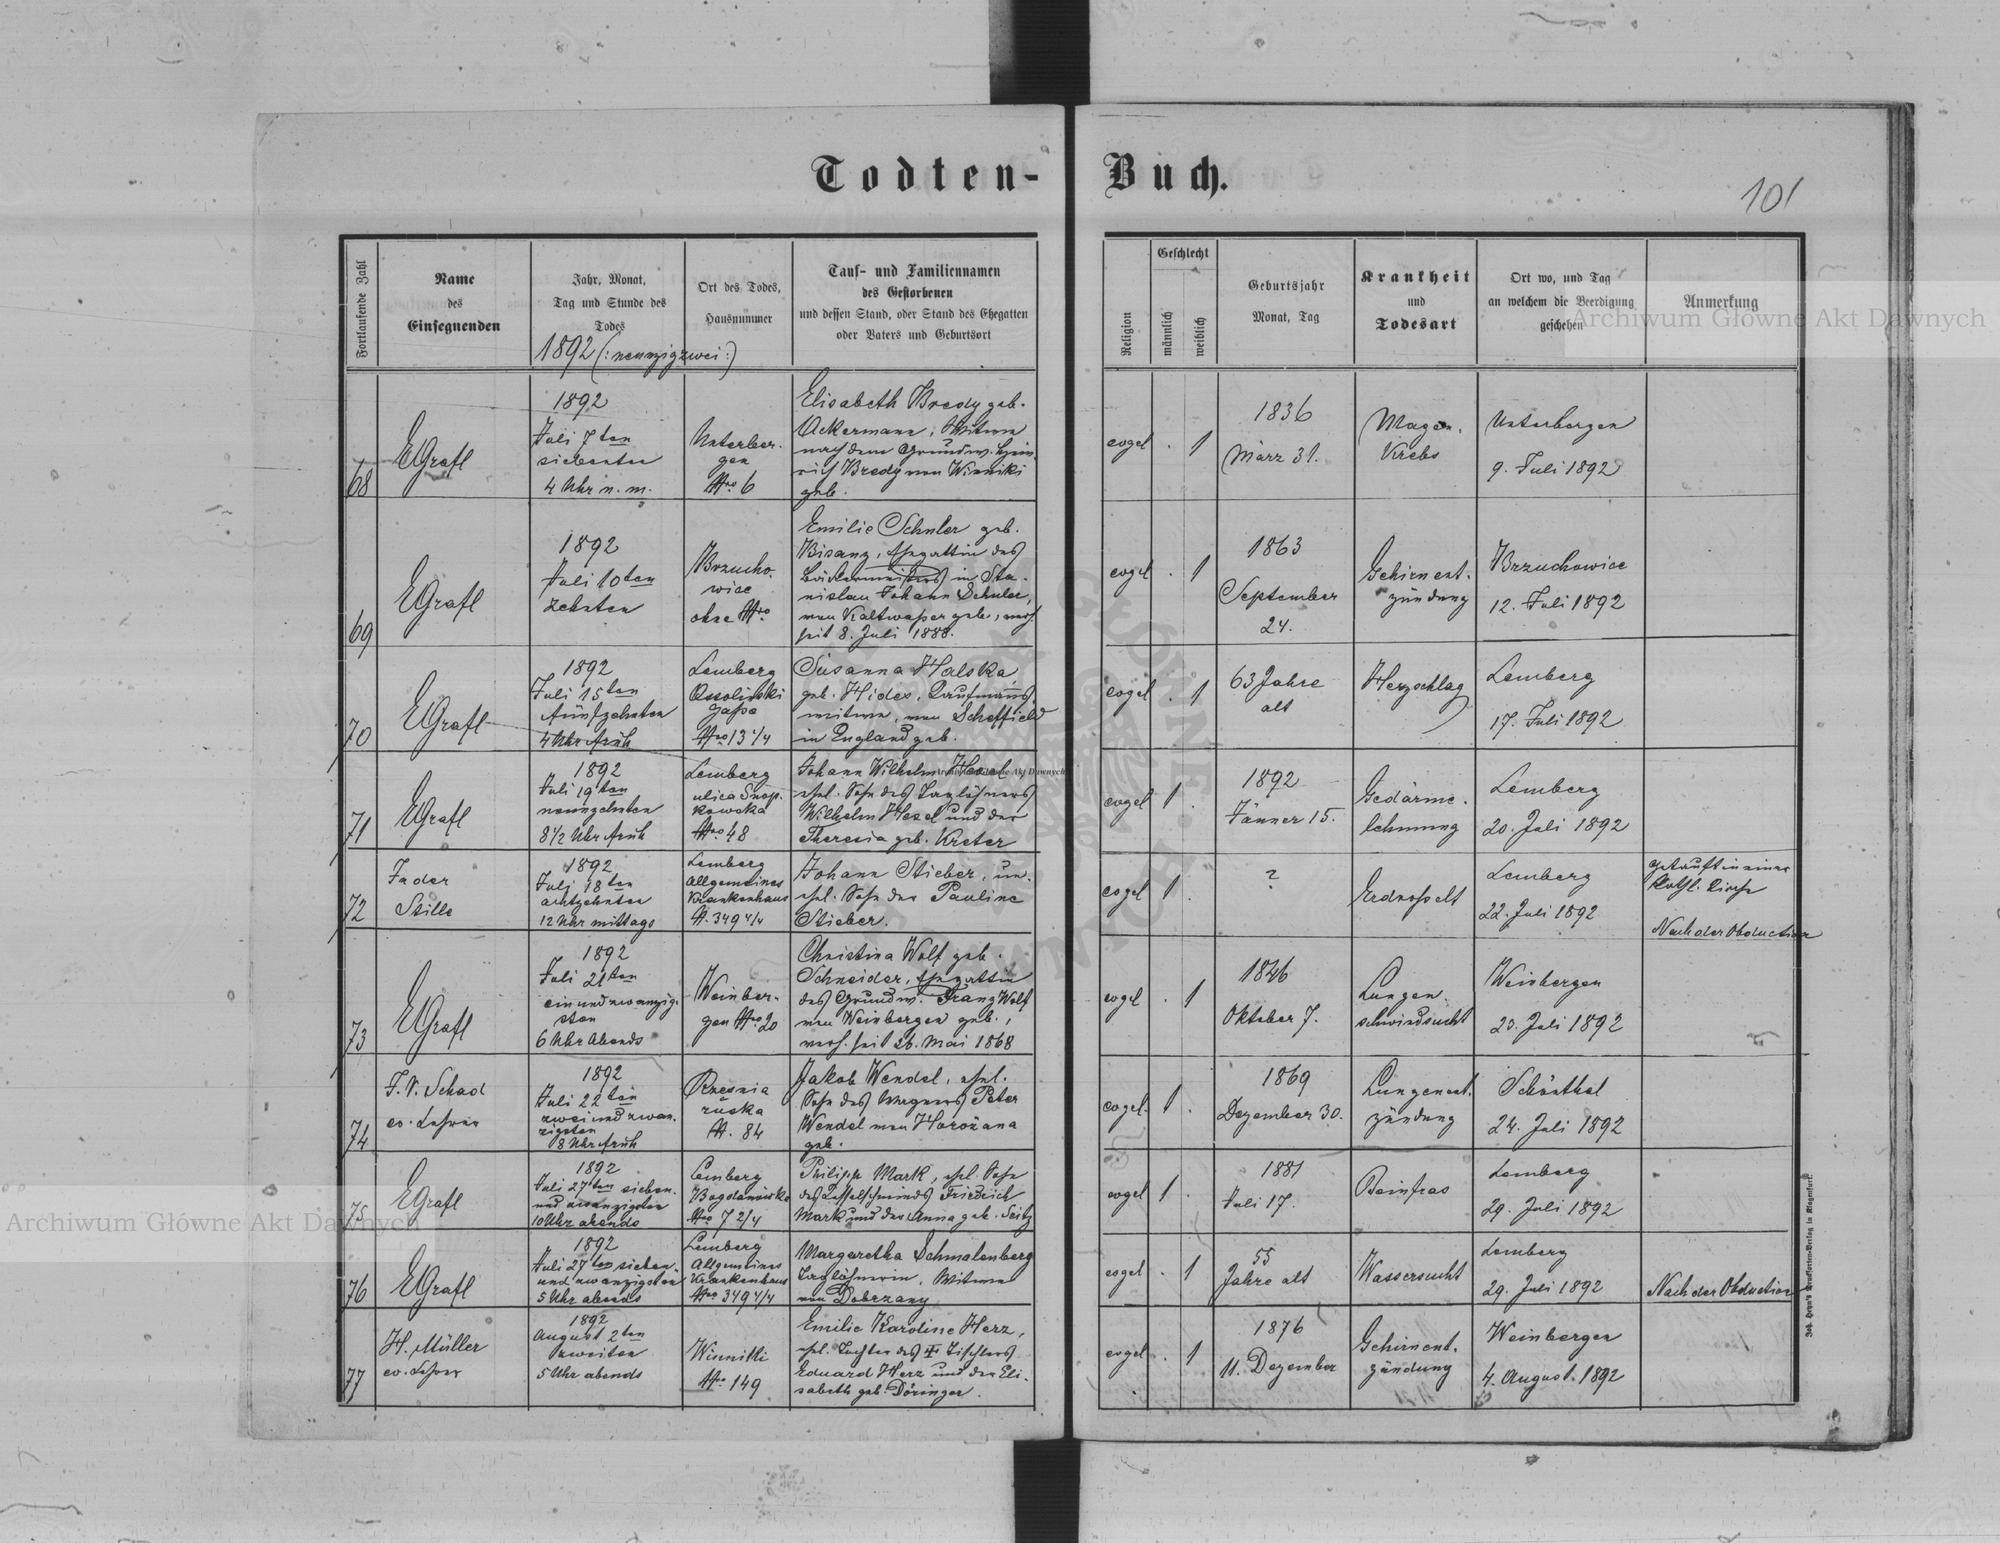 Todten-Buch.
101
Fortlaufende Zahl
Name
des
Einsegnenden
Jahr, Monat,
Tag und Stunde des
Todes
1892 (: neunzigzwei :)
Ort des Todes,
Hausnummer
Tauf- und Familiennamen
des Gestorbenen
und dessen Stand, oder Stand des Ehegatten
oder Vaters und Geburtsort
Religion
Geschlecht
männlich
weiblich
Geburtsjahr
Monat, Tag
Krankheit
und
Todesart
Ort wo, und Tag
an welchem die Beerdigung
geschehen
Anmerkung
68
EGrafl
1892
Juli 7ten
siebenten
4 Uhr n. m.
Unterber-
gen
Nro 6
Elisabeth Bredy geb.
Ackermann, Witwe
nach dem Grundw. Hein-
rich Bredy von Winniki
geb.
evgel . 1
1836
März 31.
Magen-
Krebs
Unterbergen
9. Juli 1892
69
EGrafl
1892
Juli 10ten
zehnten
Brzucho-
wice
ohne Nro
Emilie Schuler geb.
Bisanz, Ehegattin des
Bäckermeisters in Sta-
nislau Johann Schuler,
von Kaltwasser geb., verh.
seit 8. Juli 1888.
evgel . 1
1863
September
24.
Gehirnent-
zündung
Brzuchowice
12. Juli 1892
70
EGrafl
1892
Juli 15ten
fünfzehnten
4 Uhr früh
Lemberg
Ossolinski
gasse
Nro 13 1/4
Susanna Halska
geb. Hides, Kaufmanns
witwe, von Scheffield
in England geb.
evgel . 1
63 Jahre
alt
Herzschlag
Lemberg
17. Juli 1892
71
EGrafl
1892
Juli 19ten
neunzehnten
8 1/2 Uhr früh
Lemberg
ulica Snop-
kowska
Nro 48
Johann Wilhelm Hesel
ehel. Sohn des Taglöhners
Wilhelm Hesel und der
Theresia geb. Kreter
evgel 1 .
1892
Jänner 15.
Gedärme-
lehmung
Lemberg
20. Juli 1892
72
In der
Stille
1892
Juli 18ten
achtzehnten
12 Uhr mittags
Lemberg
Allgemeines
Krankenhaus
N. 349 4/4
Johann Stieber, un-
ehel. Sohn der Pauline
Stieber.
evgel 1 .
?
Erdrosselt
Lemberg
22. Juli 1892
Getauft in einer
Kathl. Kirche
Nach der Obduction
73
EGrafl
1892
Juli 21ten
ein und zwanzig-
sten
6 Uhr Abends
Weinber-
gen Nro 20
Christina Wolf geb.
Schneider, Ehegattin
des Grundw. Franz Wolf
von Weinbergen geb.,
verh. seit 26. Mai 1868
evgel . 1
1846
Oktober 7.
Lungen-
schwindsucht
Weinbergen
23. Juli 1892
74
J. V. Schad
ev. Lehrer
1892
Juli 22ten
zwei und zwan-
zigsten
8 Uhr früh
Rzesnia
ruska
N. 84
Jakob Wendel, ehel.
Sohn des Wagners Peter
Wendel von Horożana
geb.
evgel. 1 .
1869
Dezember 30.
Lungenent-
zündung
Schönthal
24. Juli 1892
75
EGrafl
1892
Juli 27ten sieben-
und zwanzigsten
10 Uhr abends
Lemberg
Bogdanówka
Nro 7 2/4
Philipp Mark, ehel. Sohn
des Kesselschmieds Friedrich
Mark und der Anna geb. Seitz
evgel 1 .
1881
Juli 17.
Beinfras
Lemberg
29. Juli 1892
76
EGrafl
1892
Juli 27ten sieben-
und zwanzigsten
5 Uhr abends
Lemberg
Allgemeines
Krankenhaus
Nro 349 4/4
Margaretha Schmalenberg
Taglöhnerin, Witwe
von Dobrzany
evgel . 1
55
Jahre alt
Wassersucht
Lemberg
29. Juli 1892
Nach der Obduction
77
H. Müller
ev. Lehrer
1892
August 2ten
zweiten
5 Uhr abends
Winniki
Nro 149
Emilie Karoline Herz,
ehel. Tochter des Tischlers
Eduard Herz und der Eli-
sabeth geb. Döringer.
evgel . 1
1876
11. Dezember
Gehirnent-
zündung
Weinbergen
4. August 1892
Archiwum Główne Akt Dawnych
Archiwum Główne Akt Dawnych
Archiwum Główne Akt Dawnych